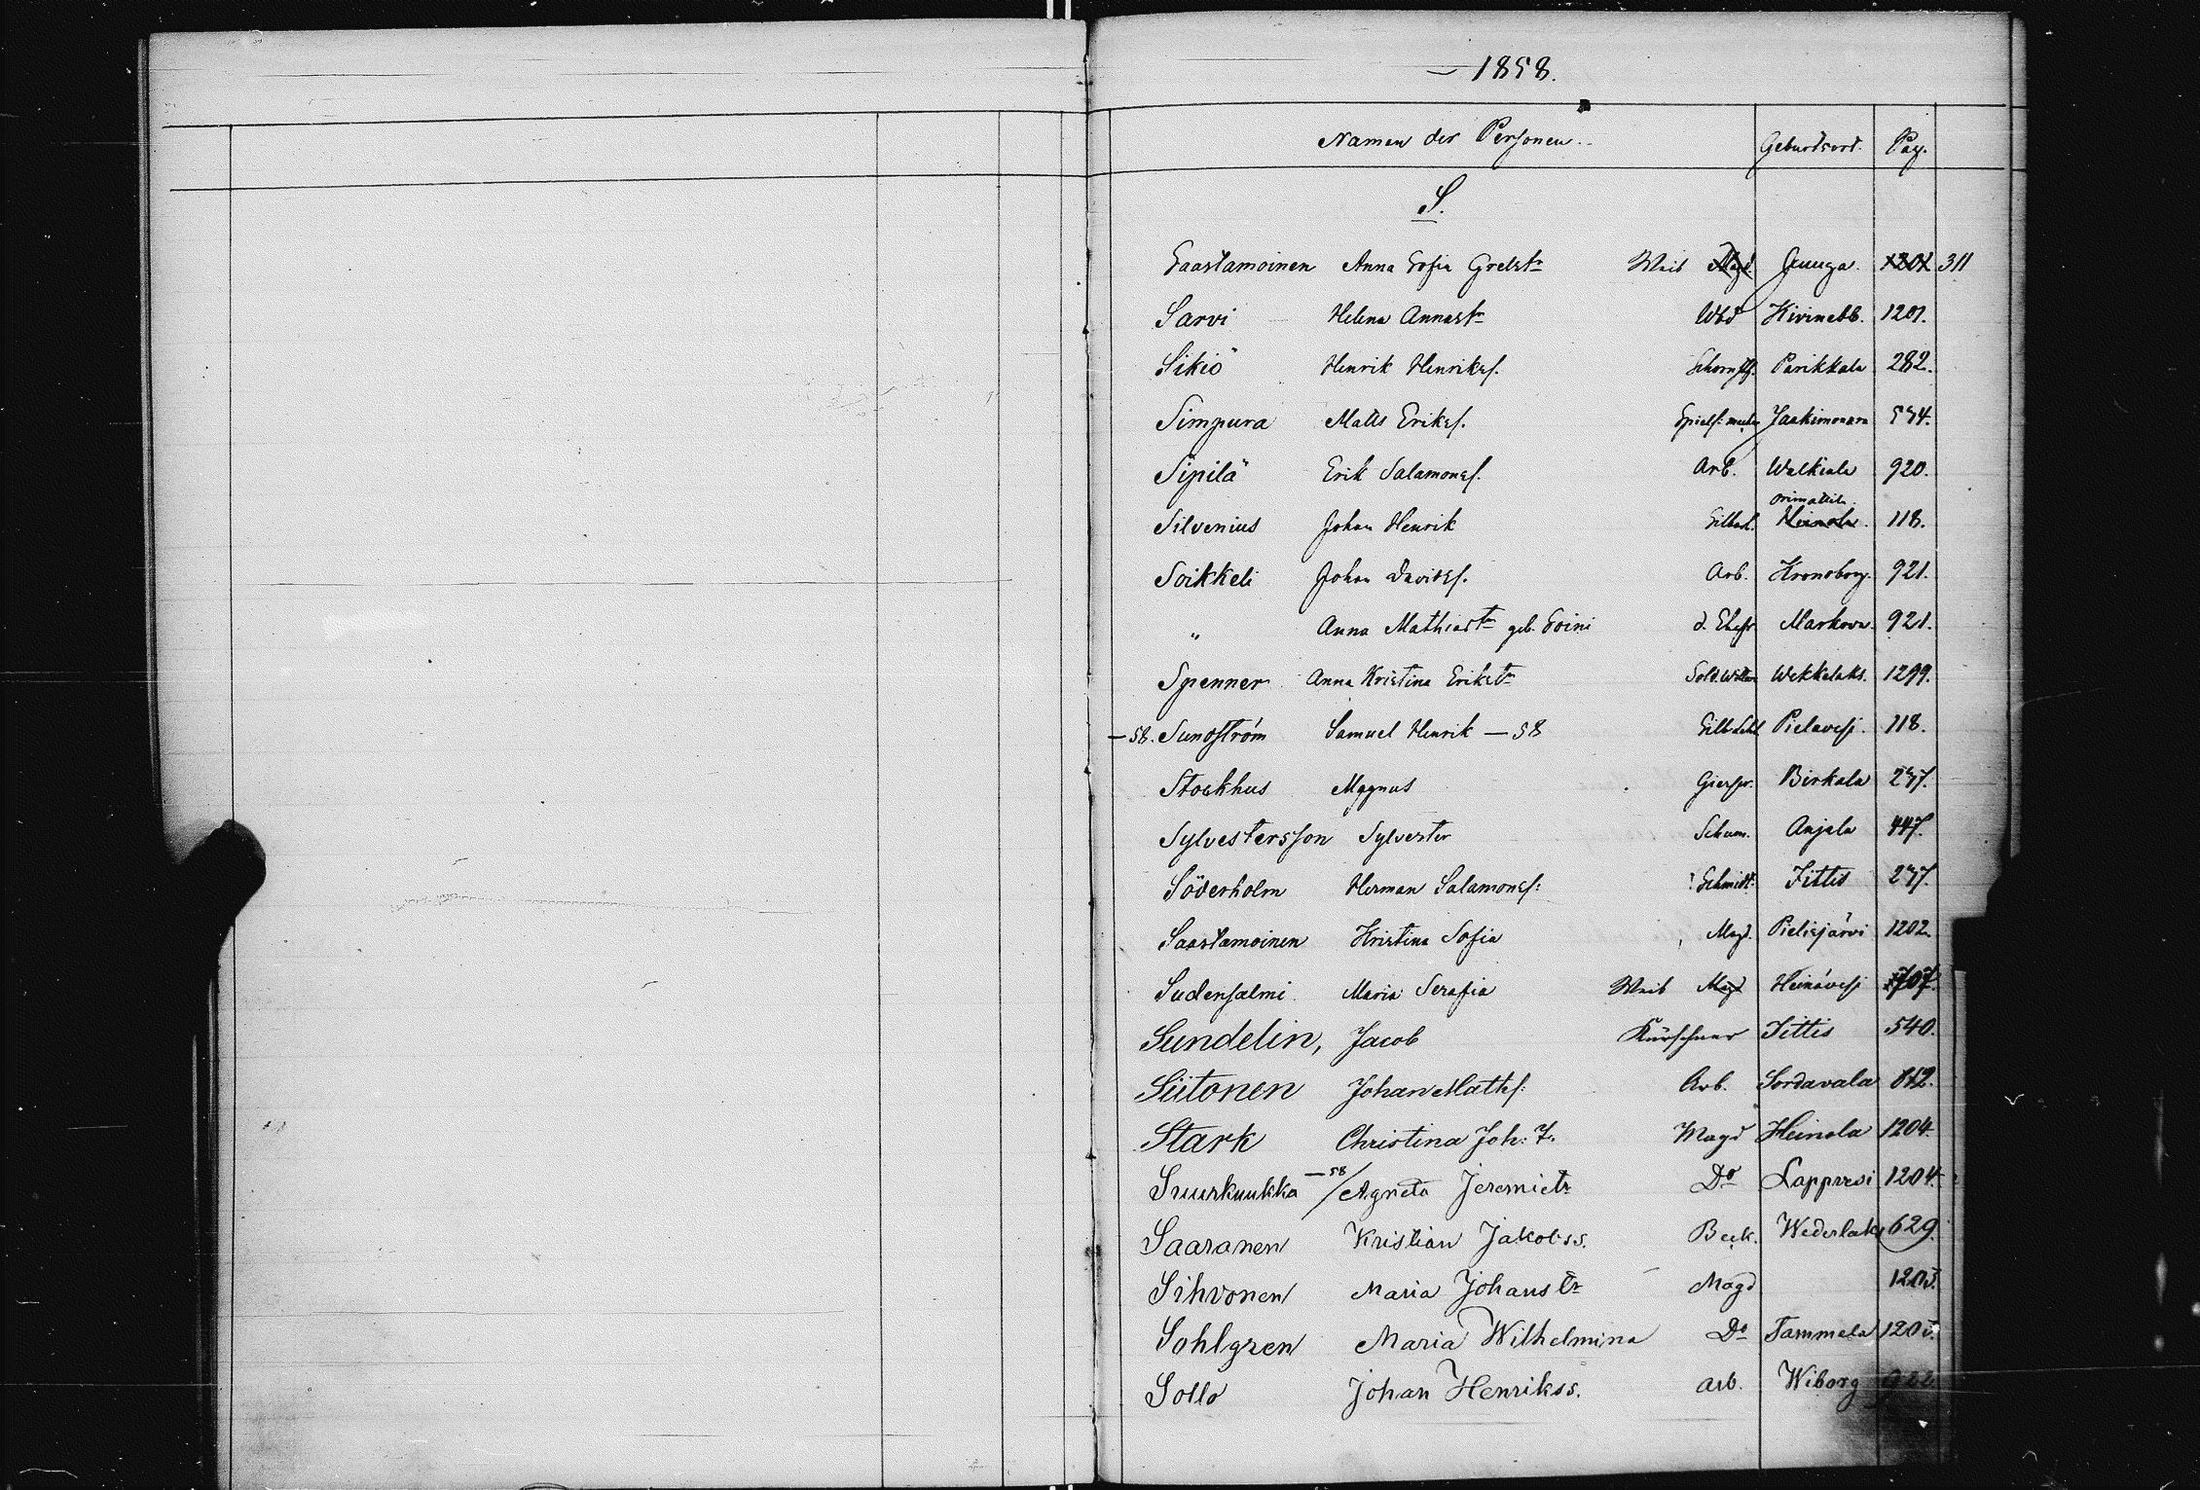 1858.
Namen der Personen. Geburdsort. Pag.
S.
Saastamoinen Anna Sofia Gretstr Weib Magd. Juuga. 1201 311
Sarvi Helena Annastr Wbd Kivinebb. 1201.
Sikiö Henrik Henrikss. Schornstf. Parikkala 282.
Simpura Matts Erikss. Jaakimvaara 534.
Sipilä Erik Salamonss. Arb. Walkiala 920.
Orimattila
Silvenius Johan Henrik Silberl. Heinola. 118.
Soikkeli Johan Davidss. Arb. Kronoborg. 921.
" Anna Mathiastr geb. Soini d. Ehefr Markova. 921.
Spenner Anna Kristina Erikstr Sold. Wekkelaks. 1299.
–58. Sundström Samuel Henrik –58 Silb.Lehl Pielavesi. 118.
Stockhus Magnus Birkala 237.
Sylvestersson Sylvester Schum. Anjala 447.
Söderholm Herman Salamonss: Schmidt. Jittis 237.
Saastamoinen Kristina Sofia Magd. Pielisjärvi 1202.
Sudensalmi Maria Serafia Weib Magd Heinävesi 707.
Sundelin, Jacob Kürschner Jittis 540.
Siitonen Johan Matts: Arb. Sordavala 812.
Stark Christina Joh: T. Magd Heinola 1204.
Suurkuukka –58/ Agneta Jeremietr Do Lappvesi 1204.
Saaranen Kristian Jakobss. Beck. Wederlaks 629.
Sihvonen Maria Johanstr Magd 1205.
Sohlgren Maria Wilhelmina Do Tammela 1205.
Sollo Johan Henrikss. Arb. Wiborg